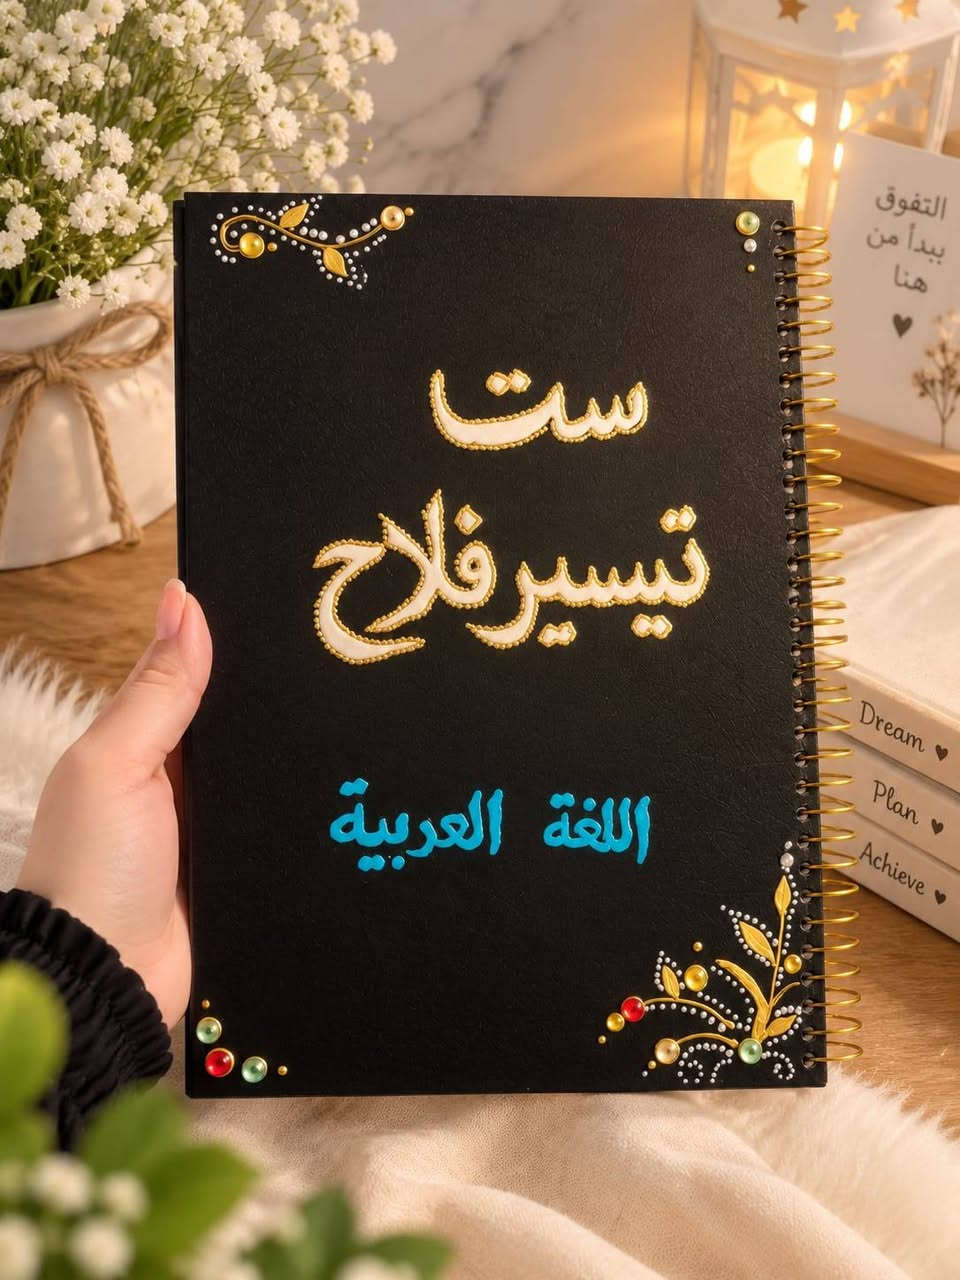 ست
تيسير فلاح
اللغة العربية
التفوق
يبدأ من
هنا
Dream
Plan
Achieve